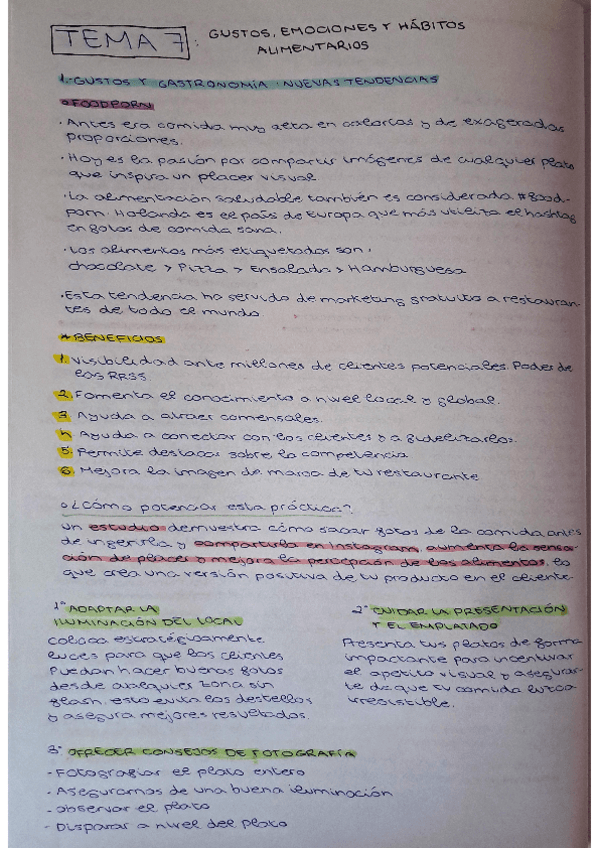 TEMA 7: GUSTOS, EMOCIONES Y HÁBITOS
ALIMENTARIOS
1. GUSTOS Y GASTRONOMÍA: NUEVAS TENDENCIAS
FOODPORN
· Antes era comida muy alta en calorías y de exageradas
proporciones.
· Hoy es la pasión por compartir imágenes de cualquier plato
que inspira un placer visual
· La alimentación saludable también es considerada #food-
porn. Holanda es el país de Europa que más utiliza el hashtag
en fotos de comida sana.
· Los alimentos más etiquetados son:
chocolate > Pizza > Ensalada > Hamburguesa
· Esta tendencia ha servido de marketing gratuito a restauran-
tes de todo el mundo.
* BENEFICIOS
1. Visibilidad ante millones de clientes potenciales. Poder de
las RRSS.
2. Fomenta el conocimiento a nivel local y global.
3. Ayuda a atraer comensales.
4. Ayuda a conectar con los clientes y a fidelizarlos.
5. Permite destacar sobre la competencia
6. Mejora la imagen de marca de tu restaurante
o ¿Cómo potenciar esta práctica?
Un estudio demuestra cómo sacar fotos de la comida antes
de ingerirla y compartirlo en Instagram, aumenta la sensa-
ción de placer y mejora la percepción de los alimentos, lo
que crea una versión positiva de tu producto en el cliente.
1º ADAPTAR LA
ILUMINACIÓN DEL LOCAL
Coloca estratégicamente
luces para que los clientes
puedan hacer buenas fotos
desde cualquier zona sin
flash. esto evita los destellos
y asegura mejores resultados.
2º CUIDAR LA PRESENTACIÓN
Y EL EMPLATADO
Presenta tus platos de forma
impactante para incentivar
el apetito visual y asegurar-
te de que tu comida luzca
irresistible.
3º OFRECER CONSEJOS DE FOTOGRAFÍA
- Fotografiar el plato entero
- Asegurarnos de una buena iluminación
- Observar el plato
- Disparar a nivel del plato